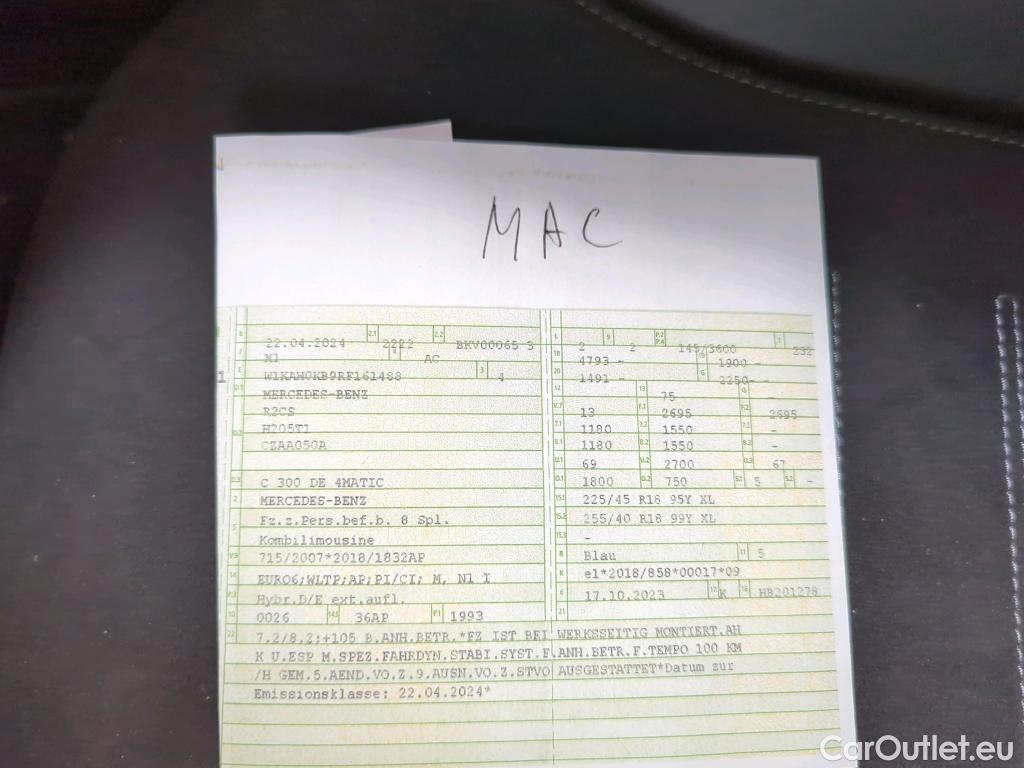 MAC
B 22.04.2024 2.1 2222 2.2 BKV00065 3
J M1 4 AC
E W1KAH0KB9RF161488 3 4
D.1 MERCEDES-BENZ
R2CS
D.2 H205T1
CZAA050A
D.3 C 300 DE 4MATIC
2 MERCEDES-BENZ
5 Fz.z.Pers.bef.b. 8 Spl.
Kombilimousine
V.9 715/2007*2018/1832AP
14 EURO6;WLTP;AP;PI/CI; M, N1 I
P.3 Hybr.D/E ext.aufl.
10 0026 14.1 36AP P.1 1993
L 2 9 2 P.2 P.4 145/3600 T 232
18 4793 - 19 1900 -
20 1491 - G 2250- -
12 - 13 75 Q -
V.7 13 F.1 2695 F.2 2695
7.1 1180 7.2 1550 7.3 -
8.1 1180 8.2 1550 8.3 -
U.1 69 U.2 2700 U.3 67
O.1 1800 O.2 750 S.1 5 S.2 -
15.1 225/45 R18 95Y XL
15.2 255/40 R18 99Y XL
15.3 -
R Blau 11 5
K e1*2018/858*00017*09
6 17.10.2023 17 K 16 HB201278
21
22 7.2/8.2:+105 B.ANH.BETR.*FZ IST BEI WERKSSEITIG MONTIERT.AH
K U.ESP M.SPEZ.FAHRDYN.STABI.SYST.F.ANH.BETR.F.TEMPO 100 KM
/H GEM.5.AEND.VO.Z.9.AUSN.VO.Z.STVO AUSGESTATTET*Datum zur
Emissionsklasse: 22.04.2024*
CarOutlet.eu